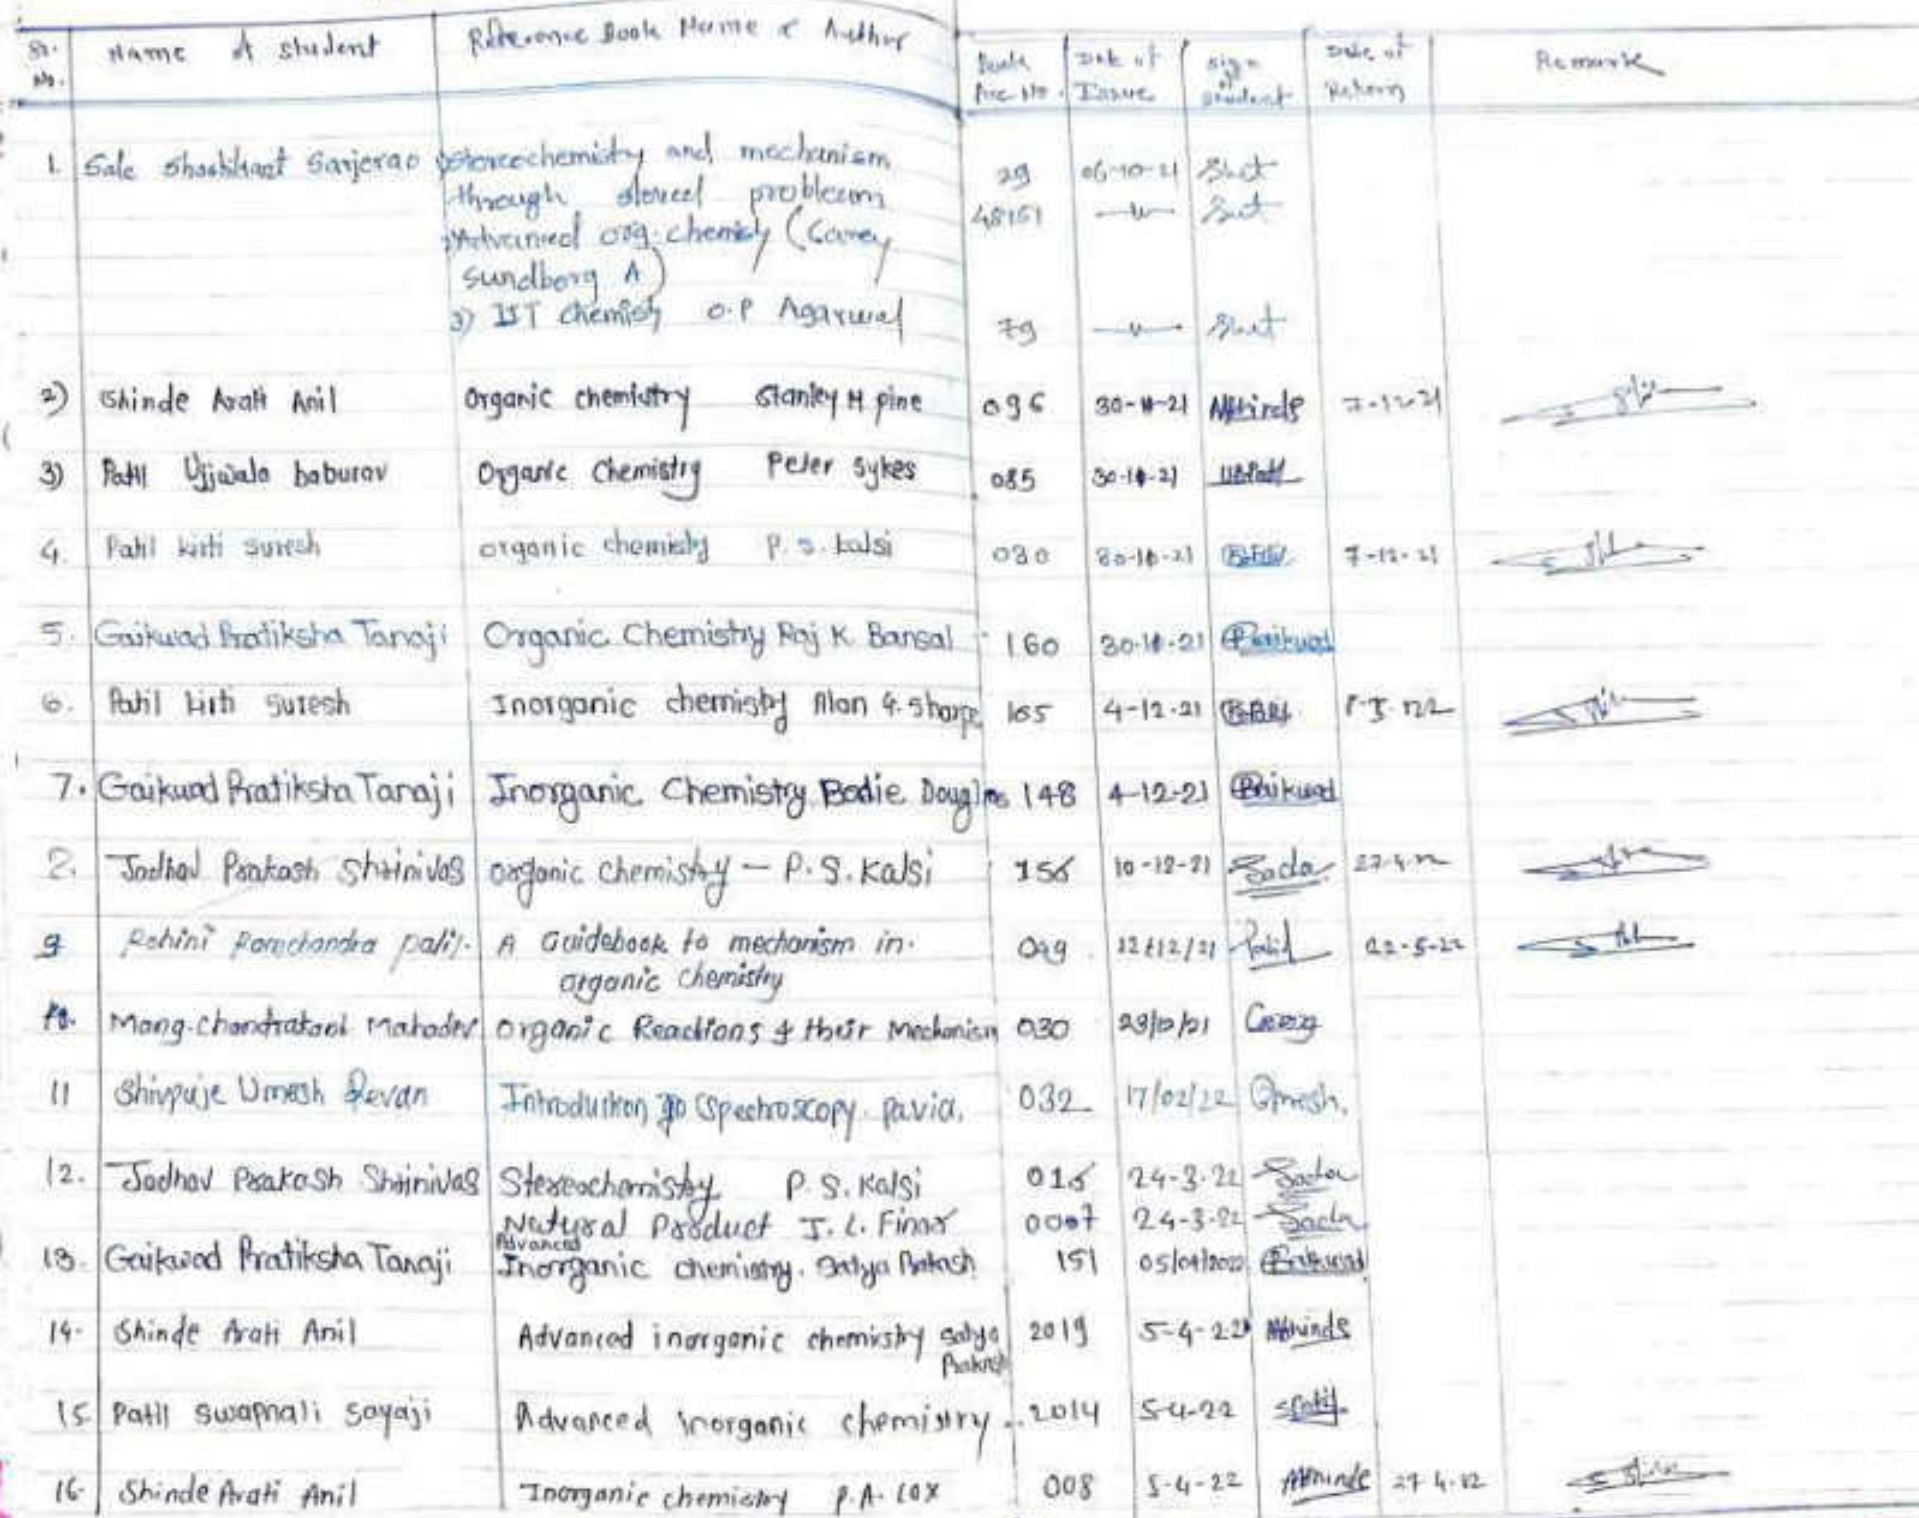 Sr. No. Name of student Reference Book Name & Author Book Acc No. Date of Issue sign of student Date of Return Remark
1. Sale Shashikant Sarjerao 1) Stereochemistry and mechanism 29 06-10-21
through problem 48151 —"—
2) Advanced org. chemisty (Carey
Sundborg A)
3) IST chemisty O.P Agarwal 79 —"—
2) Shinde Arati Anil Organic chemistry Stanley H pine 096 30-10-21 AAShinde 7-12-21
3) Patil Ujjwala baburav Organic Chemistry Peter Sykes 085 30-10-21 UBPatil
4. Patil kirti suresh organic chemisty P. S. kalsi 030 30-10-21 7-12-21
5. Gaikwad Pratiksha Tanaji Organic Chemistry Raj K Bansal 160 30-10-21 PGaikwad
6. Patil kirti suresh Inorganic chemisty Alan G. Sharpe 165 4-12-21
7. Gaikwad Pratiksha Tanaji Inorganic Chemistry Bodie Douglas 148 4-12-21 PGaikwad
2. Jadhav Prakash Shrinivas organic chemistry — P. S. Kalsi 156 10-12-21 27-4-22
9 Rohini Ramchandra patil. A Guidebook to mechanism in. 049 12/12/21 Patil 22-5-22
organic chemistry
10. Mang. Chandrakant Mahadev Organic Reactions & their Mechanism 030 23/12/21
11 Shivpuje Umesh Devan Introduction to Spectroscopy. Pavia. 032 17/02/22 Umesh.
12. Jadhav Prakash Shrinivas Stereochemistry P. S. Kalsi 016 24-3-22
Natural Product I. L. Finar 0007 24-3-22
13. Gaikwad Pratiksha Tanaji Advanced Inorganic chemistry. Satya Prakash 151 05/04/2022 PGaikwad
14. Shinde Arati Anil Advanced inorganic chemistry Satya 2019 5-4-22 AAShinde
Prakash
15 Patil swapnali sayaji Advanced inorganic chemistry. 2014 5-4-22 SPatil
16. Shinde Arati Anil Inorganic chemistry P.A. Cox 008 5-4-22 AAShinde 27 4.22